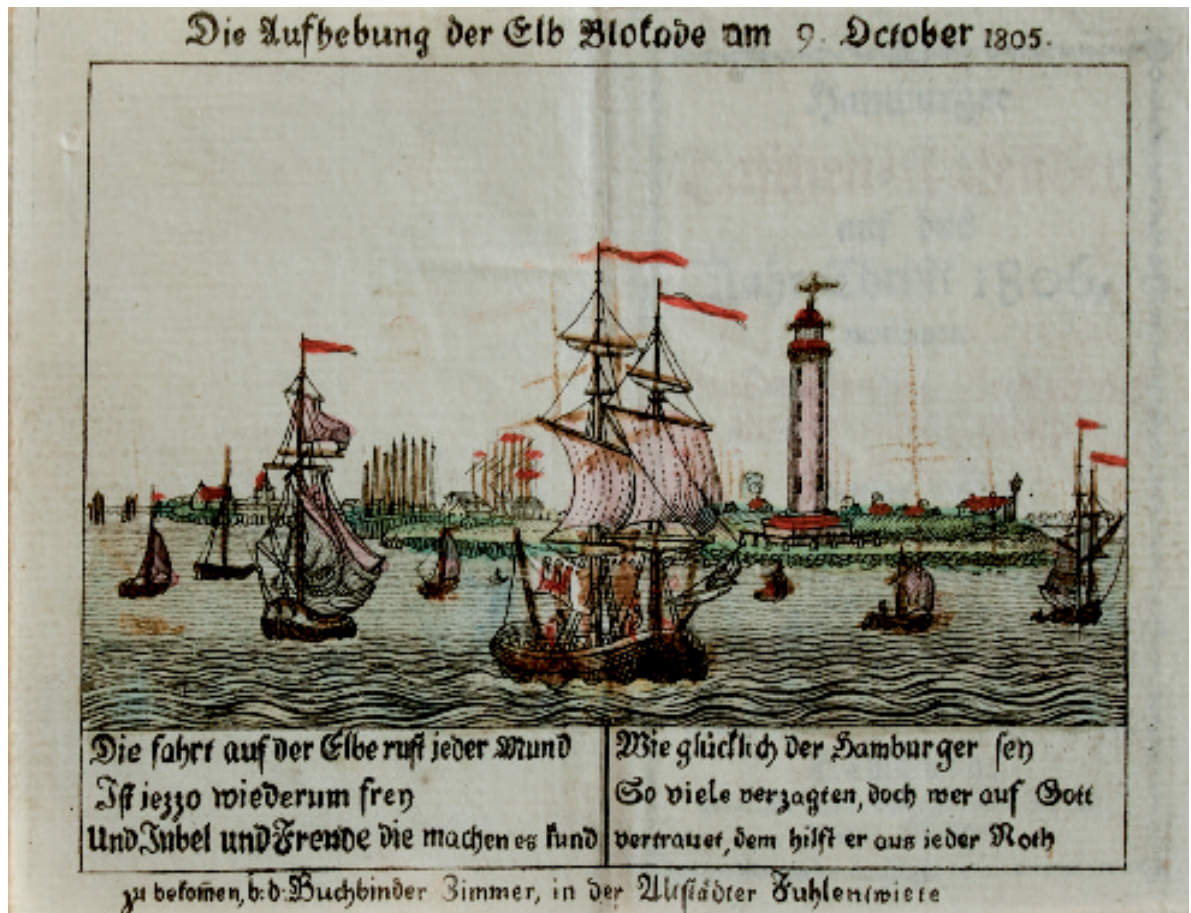 Die Aufhebung der Elb Blokade am 9. October 1805.
Die fahrt auf der Elbe ruft jeder Mund
Ist jezzo wiederum frey
Und Jubel und Freude die machen es kund
Wie glücklich der Hamburger sey
So viele verzagten, doch wer auf Gott
vertrauet, dem hilft er aus jeder Noth
zu bekom̄en, b. d. Buchbinder Zimmer, in der Altstädter Fuhlentwiete